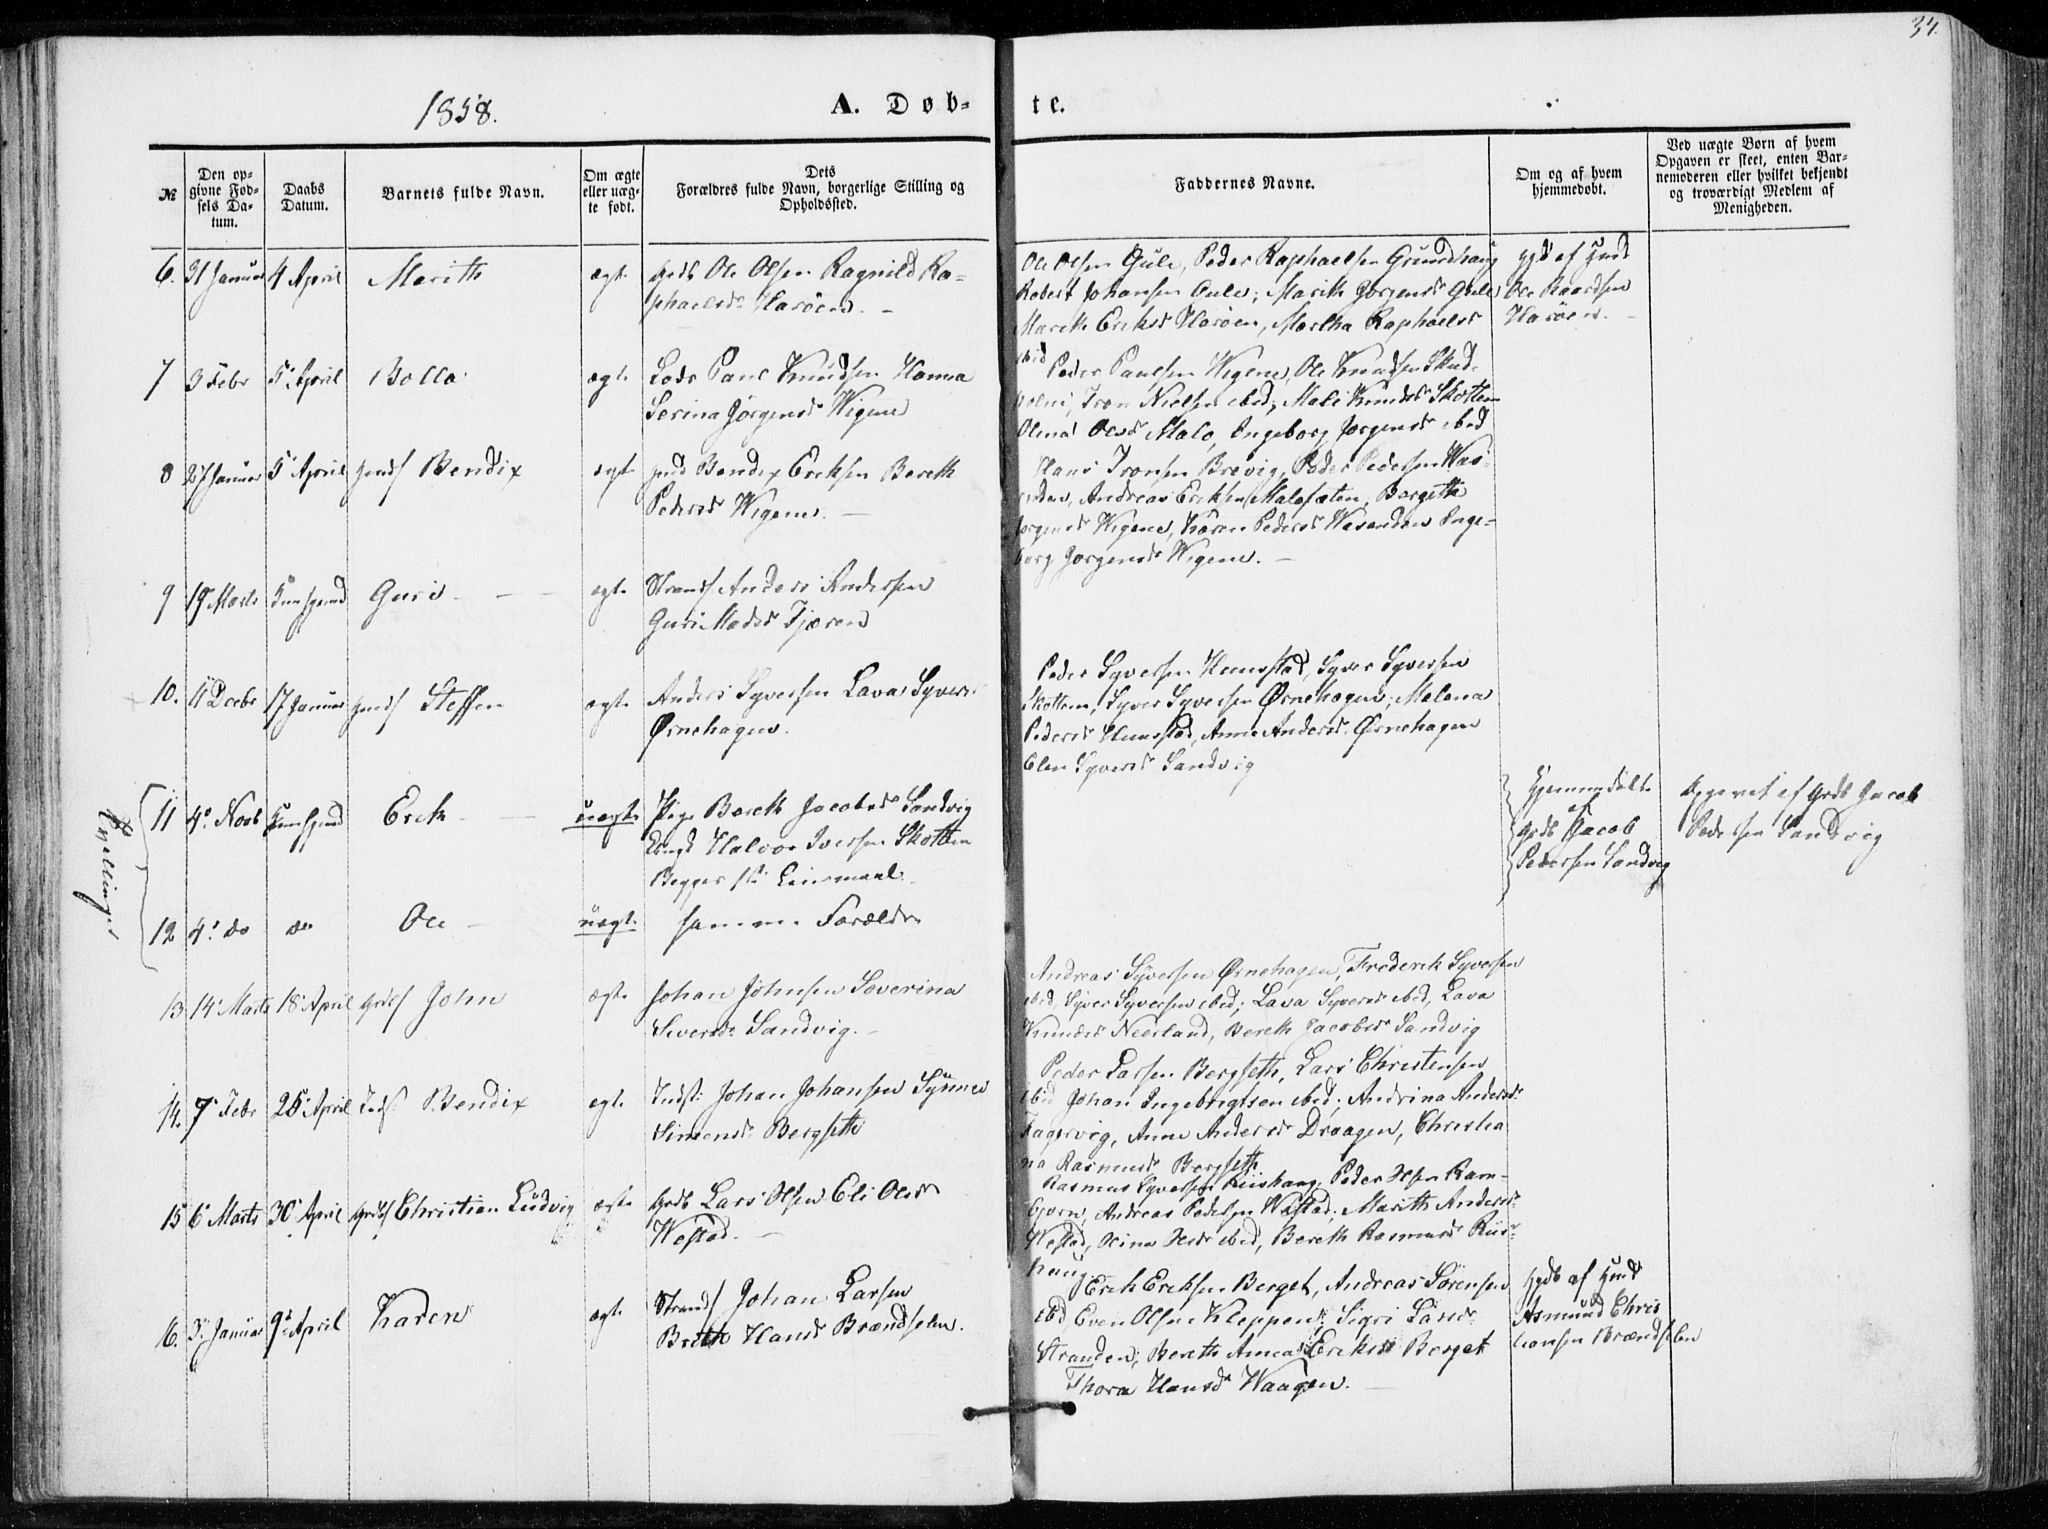 34.
1858.
A. Døb-
te.
№
Den op-
givne Fød-
sels Da-
tum.
Daabs
Datum.
Barnets fulde Navn.
Om ægte
eller uæg-
te født.
Dets
Forældres fulde Navn, borgerlige Stilling og
Opholdssted.
Faddernes Navne.
Om og af hvem
hjemmedøbt.
Ved uægte Børn af hvem
Opgaven er skeet, enten Bar-
nemoderen eller hvilket bekjendt
og troværdigt Medlem af
Menigheden.
6. 31 Januar 4 April Marith ægte Grdb Ole Olsen Ragnild Ra-
phaelsd. Harøen. -
Ole Olsen Gule, Peder Raphaelsen Grundhaug
Robert Johansen Gule; Marith Jørgensd. Gule
Marith Eriksd Harøen, Martha Raphaelsd
ibid
hjd af Gmd
Ole Baardsen
Harøen. -
7 3 Febr 5 April Bolla ægte Lods Paul Knudsen Hanna
Serina Jørgensd. Wigene
Peder Paulsen Wigene, Ole Knudsen Skud-
Iver Nielsen ibid; Mali Knudsd. Skotten
Olina Olsd Malo, Ingeborg Jørgensd. ibid
8 27 Januar 5 April Gmds Bendix ægte Gmd Bendix Eriksen Bereth
Pedersd Wigene. -
Hans Iversen Brevig, Peder Pedersen Was-
enden, Andreas Eriksen Malefæten, Bergithe
Jørgensd. Wigene, Karen Pedersd. Wasenden Inge-
borg Jørgensd. Wigene. -
9 19 Marts Guri - ægte Strands Anders Andersen
Guri Madsd Tjæren
10. 4 Decbr 17 Januar Gmds Steffen ægte Anders Syversen Lava Syversd
Ørnehagen.
Peder Syversen Hemstad, Syver Syversen
Skotten, Syver Syversen Ørnehagen; Malena
Pedersd Hemstad, Anne Andersd. Ørnehagen
Elen Syversd Sandvig
Tvillinger
11 4. Novb Erik - uægte Pige Bereth Jacobsd. Sandvig
Ungk Halvor Iversen Skotten
Begges 1ste Leiermaal.
Hjemmedøbt
af
Grdb Jacob
Pedersen Sandvig
Opgivet af Grdb Jacob
Pedersen Sandvig
12 4. do do Ole - uægte samme Forældre
13 14 Marts 18 April Grdbs John ægte Johan Johnsen Severina
Siversd. Sandvig. -
Andreas Syversen Ørnehagen, Frederik Syversen
ibid, Syver Syversen ibid; Lava Syversd ibid, Lava
Knudsd Neerland, Bereth Jacobsd Sandvig
14. 7 Febr 25 April Inds. Bendix ægte Indst: Johan Johansen Synnev
Simensd. Bergseth
Peder Larsen Bergseth, Lars Christensen
ibid Johan Ingebrigtsen ibid; Andrina Andersd:
Fagervig, Anne Andersd Draagen, Christia
na Rasmusd Bergseth
15 6 Marts 30 April Grdbs Christian Ludvig ægte Grdb Lars Olsen Eli Olsd
Westad. -
Rasmus Syversen Riishaug, Peder Olsen Ram-
bjørn, Andreas Pedersen Westad; Marith Andersd.
Westad, Olina Olsd. ibid, Bereth Rasmusd Riis-
haug.
16. 3. Januar 9 April Karen ægte Strands Johan Larsen
Brith Hansd Brændselen.
Erik Eriksen Berget, Andreas Sørensen
ibd Even Olsen Kleppen; Sigri Larsd.
Stranden, Bereth Annea Eriksd Berget
Thora Hansd. Waagen. -
hjdb af Gmd
Asmund Chris
tiansen Brændselen